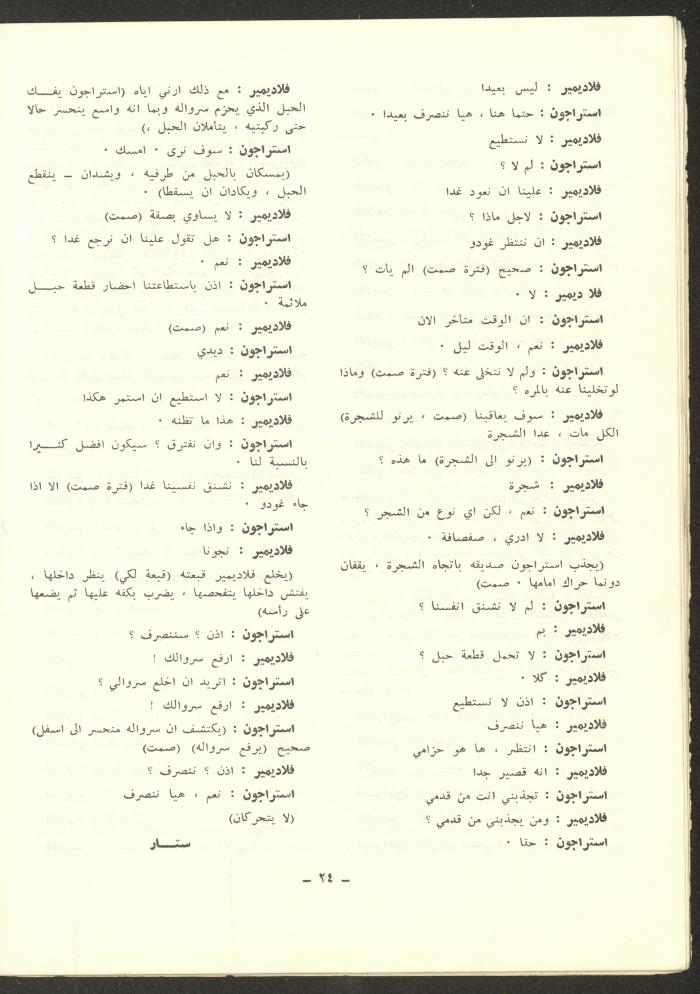 فلاديمير : ليس بعيدا
استراجون : حتما هنا ، هيا ننصرف بعيدا ٠
فلاديمير : لا نستطيع
استراجون : لم لا ؟
فلاديمير : علينا ان نعود غدا
استراجون : لاجل ماذا ؟
فلاديمير : ان ننتظر غودو
استراجون : صحيح (فترة صمت) الم يات ؟
فلا ديمير : لا ٠
استراجون : ان الوقت متأخر الان
فلاديمير : نعم ، الوقت ليل ٠
استراجون : ولم لا نتخلى عنه ؟ (فترة صمت) وماذا
لوتخلينا عنه بالمره ؟
فلاديمير : سوف يعاقبنا (صمت ، يرنو للشجرة)
الكل مات ، عدا الشجرة
استراجون : (يرنو الى الشجرة) ما هذه ؟
فلاديمير : شجرة
استراجون : نعم ، لكن اي نوع من الشجر ؟
فلاديمير : لا ادري ، صفصافة ٠
(يجذب استراجون صديقه باتجاه الشجرة ، يقفان
دونما حراك امامها ٠ صمت)
استراجون : لم لا نشنق انفسنا ؟
فلاديمير : بم
استراجون : لا تحمل قطعة حبل ؟
فلاديمير : كلا ٠
استراجون : اذن لا نستطيع
فلاديمير : هيا ننصرف
استراجون : انتظر ، ها هو حزامي
فلاديمير : انه قصير جدا
استراجون : تجذبني انت من قدمي
فلاديمير : ومن يجذبني من قدمي ؟
استراجون : حقا ٠
فلاديمير : مع ذلك ارني اياه (استراجون يفــك
الحبل الذي يحزم سرواله وبما انه واسع ينحسر حالا
حتى ركبتيه ، يتأملان الحبل ،)
استراجون : سوف نرى ٠ امسك ٠
(يمسكان بالحبل من طرفيه ، ويشدان ــ ينقطع
الحبل ، ويكادان ان يسقطا) ٠
فلاديمير : لا يساوي بصقة (صمت)
استراجون : هل تقول علينا ان نرجع غدا ؟
فلاديمير : نعم ٠
استراجون : اذن باستطاعتنا احضار قطعة حبــل
ملائمة ٠
فلاديمير : نعم (صمت)
استراجون : ديدي
فلاديمير : نعم
استراجون : لا استطيع ان استمر هكذا
فلاديمير : هذا ما تظنه ٠
استراجون : وان نفترق ؟ سيكون افضل كثــيرا
بالنسبة لنا ٠
فلاديمير : نشنق نفسينا غدا (فترة صمت) الا اذا
جاء غودو ٠
استراجون : واذا جاء
فلاديمير : نجونا
(يخلع فلاديمير قبعته (قبعة لكي) ينظر داخلها ،
يفتش داخلها يتفحصها ، يضرب بكفه عليها ثم يضعها
على رأسه)
استراجون : اذن ؟ سننصرف ؟
فلاديمير : ارفع سروالك !
استراجون : اتريد ان اخلع سروالي ؟
فلاديمير : ارفع سروالك !
استراجون : (يكتشف ان سرواله منحسر الى اسفل)
صحيح (يرفع سرواله) (صمت)
فلاديمير : اذن ؟ ننصرف ؟
استراجون : نعم ، هيا ننصرف
(لا يتحركان)
ستــار
ــ ٢٤ ــ